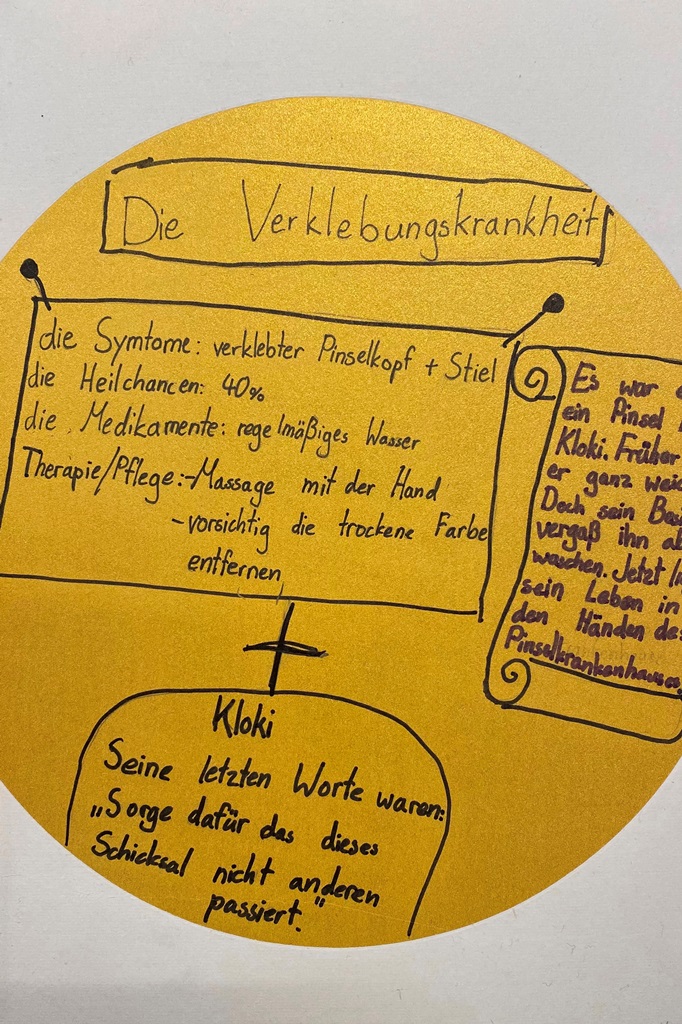 Die Verklebungskrankheit
die Symtome: verklebter Pinselkopf + Stiel
die Heilchancen: 40%
die Medikamente: regelmäßiges Wasser
Therapie/Pflege:-Massage mit der Hand
-vorsichtig die trockene Farbe
entfernen
Es war
ein Pinsel
Kloki. Früher
er ganz
Doch sein
vergaß ihn
waschen. Jetzt
sein Leben in
den Händen
Pinselkrankenhauses
Kloki
Seine letzten Worte waren:
„Sorge dafür das dieses
Schicksal nicht anderen
passiert."